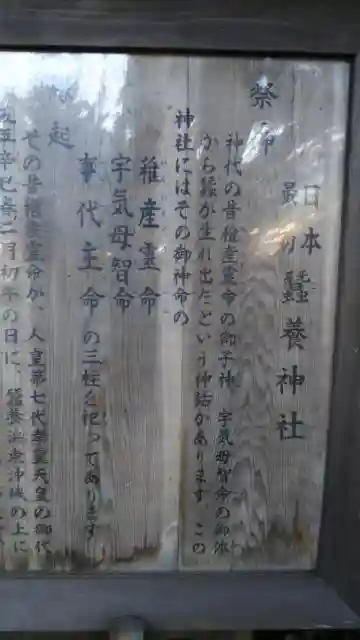 日本
最初 蠶養神社
祭神
神代の昔稚産霊命の御子神、宇気母智命の御体
から蠶が生れ出たという神話があります。この
神社にはその御神命の
稚産霊命
宇気母智命
事代主命の三柱を祀ってあります
起
その昔稚産霊命が、人皇第七代孝霊天皇の御代
五年辛巳春二月初午の日に、蠶養浜東沖磯の上に